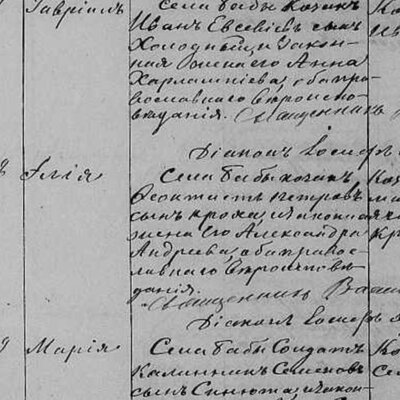 Гавріилъ
Села Бабы козакъ
Иванъ Евсевіевъ сынъ
Холодный и закон-
ная жена его Анна
Харлампіева, оба пра-
вославнаго вѣроиспо-
вѣданія.
Священникъ
Діаконъ Іосифъ
Илія
Села Бабы козакъ
Ѳеоктистъ Петровъ
сынъ Кроха, и законная
жена его Александра
Андреева, оба правос-
лавнаго вѣроисповѣ-
данія.
Священникъ Васи
Діаконъ Іосифъ
Марія
Села Бабы Солдатъ
Калинникъ Семеновъ
сынъ Синюта, и закон-